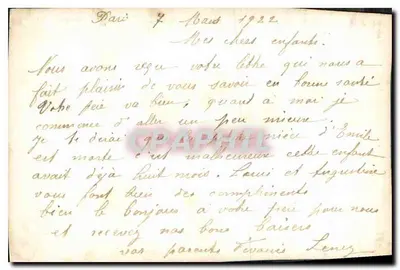 Paris 7 Mars 1922
Mes chers enfants.
Nous avons reçu votre lettre qui nous a
fait plaisir de vous savoir en bonne santé
Votre père va bien, quant à moi je
commence d'aller un peu mieux.
Je te dirai que la nièce d'Emile
est morte c'est malheureux cette enfant
avait déjà huit mois. Louis et Augustine
vous font bien des compliments
bien le bonjour à votre père pour nous
et recevez nos bons baisers
vos parents
CPAPHIL